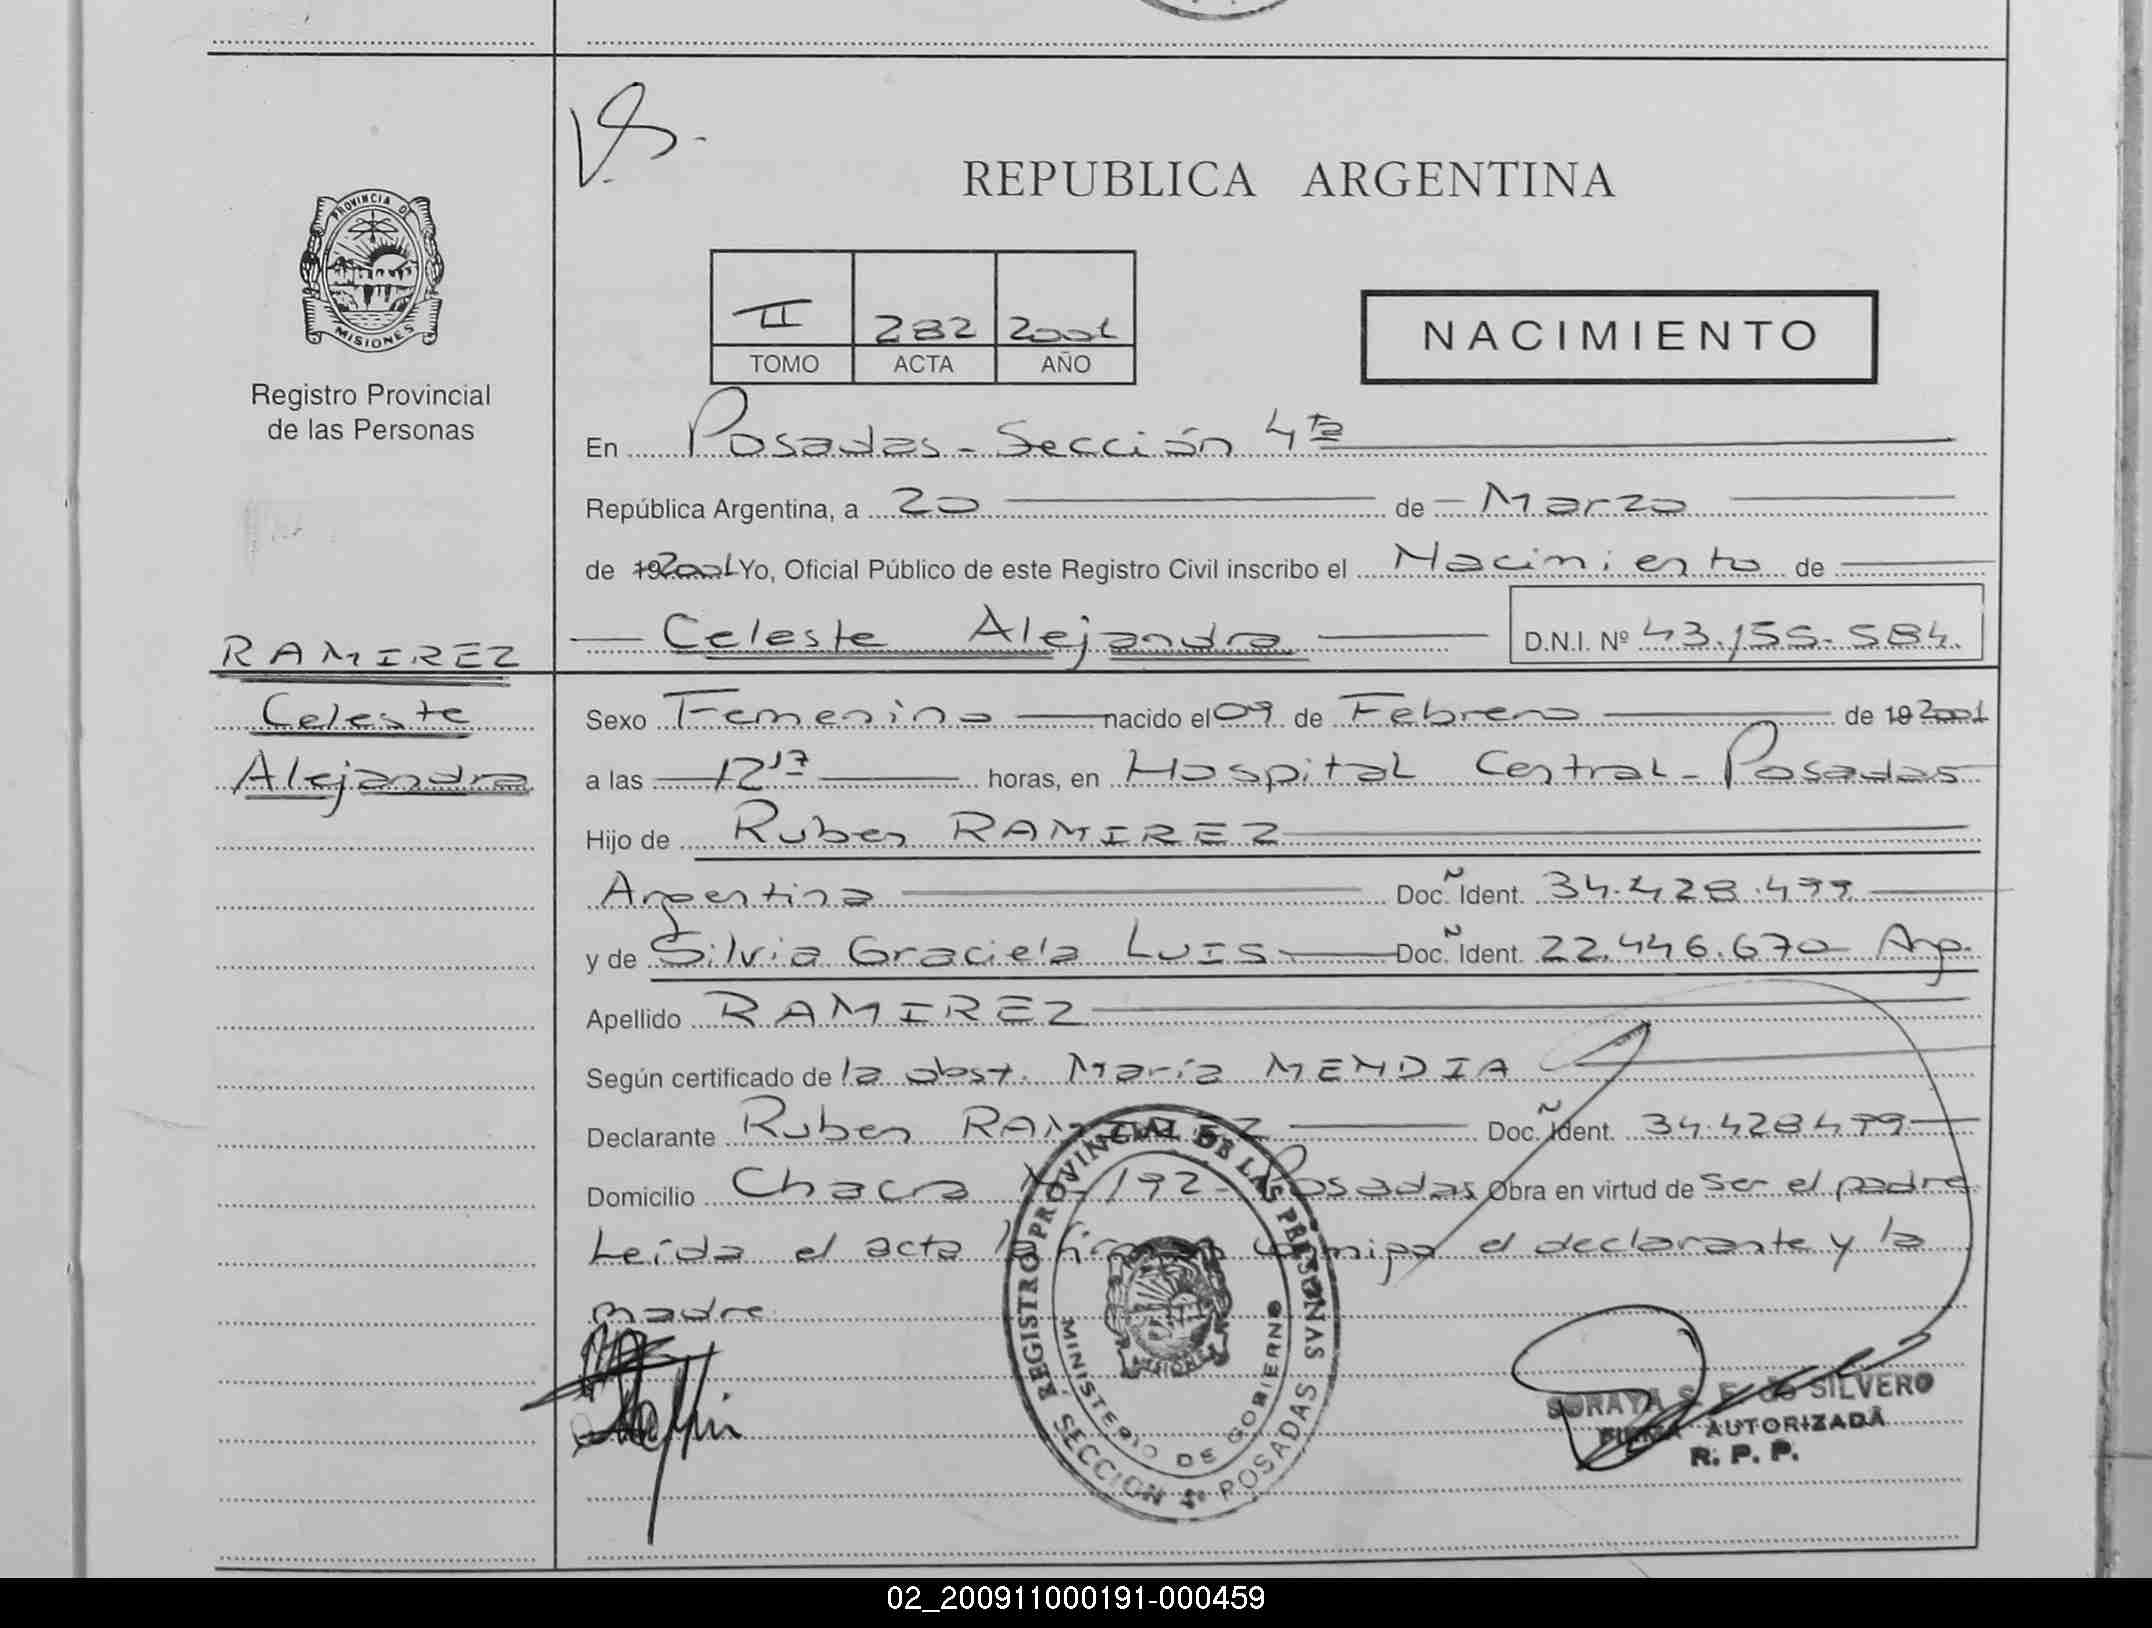 REPUBLICA ARGENTINA
PROVINCIA DE
MISIONES
Registro Provincial
de las Personas
II 282 2001
TOMO ACTA AÑO
NACIMIENTO
En Posadas - Sección 4ta
República Argentina, a 20 de Marzo
de 192001 Yo, Oficial Público de este Registro Civil inscribo el Nacimiento de
Celeste Alejandra D.N.I. Nº 43.155.584.
RAMIREZ
Celeste
Alejandra
Sexo Femenino nacido el 09 de Febrero de 19 2001
a las 12 17 horas, en Hospital Central - Posadas
Hijo de Ruben RAMIREZ
Argentina Doc. Ident. 34.428.499
y de Silvia Graciela LUIS Doc. Ident. 22.446.670 Arg.
Apellido RAMIREZ
Según certificado de la obst. María MENDIA
Declarante Ruben RAMIREZ Doc. Ident. 34.428499
Domicilio Chacra Nº 192 - Posadas Obra en virtud de ser el padre
Leída el acta la firman conmigo el declarante y la
madre.
REGISTRO PROVINCIAL DE LAS PERSONAS
MINISTERIO DE GOBIERNO
MISIONES
SECCION 4º POSADAS
SORAYA S. F. de SILVERO
FIRMA AUTORIZADA
R. P. P.
02_200911000191-000459